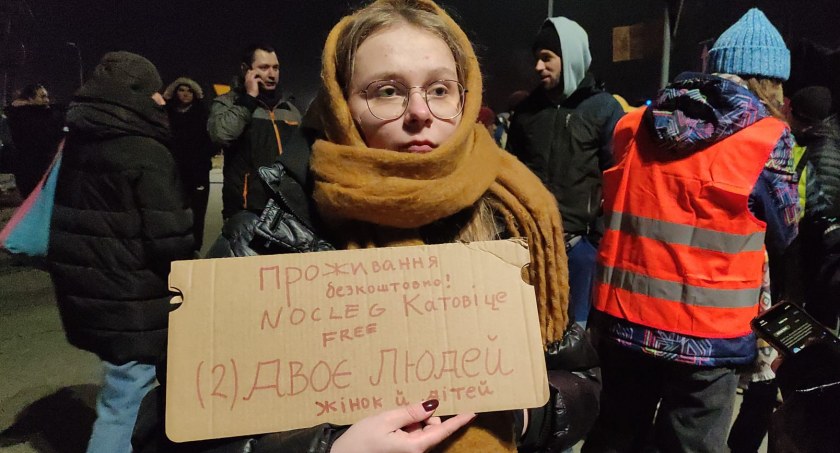 Проживання
безкоштовно!
NOCLEG Катовіце
FREE
(2) Двоє людей
жінок й дітей